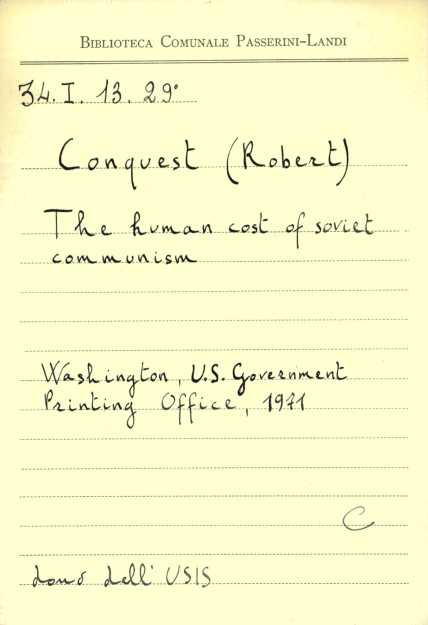 BIBLIOTECA COMUNALE PASSERINI-LANDI
34. I. 13. 29°
Conquest (Robert)
The human cost of soviet
communism
Washington, U.S. Government
Printing Office, 1971
C
dono dell' USIS